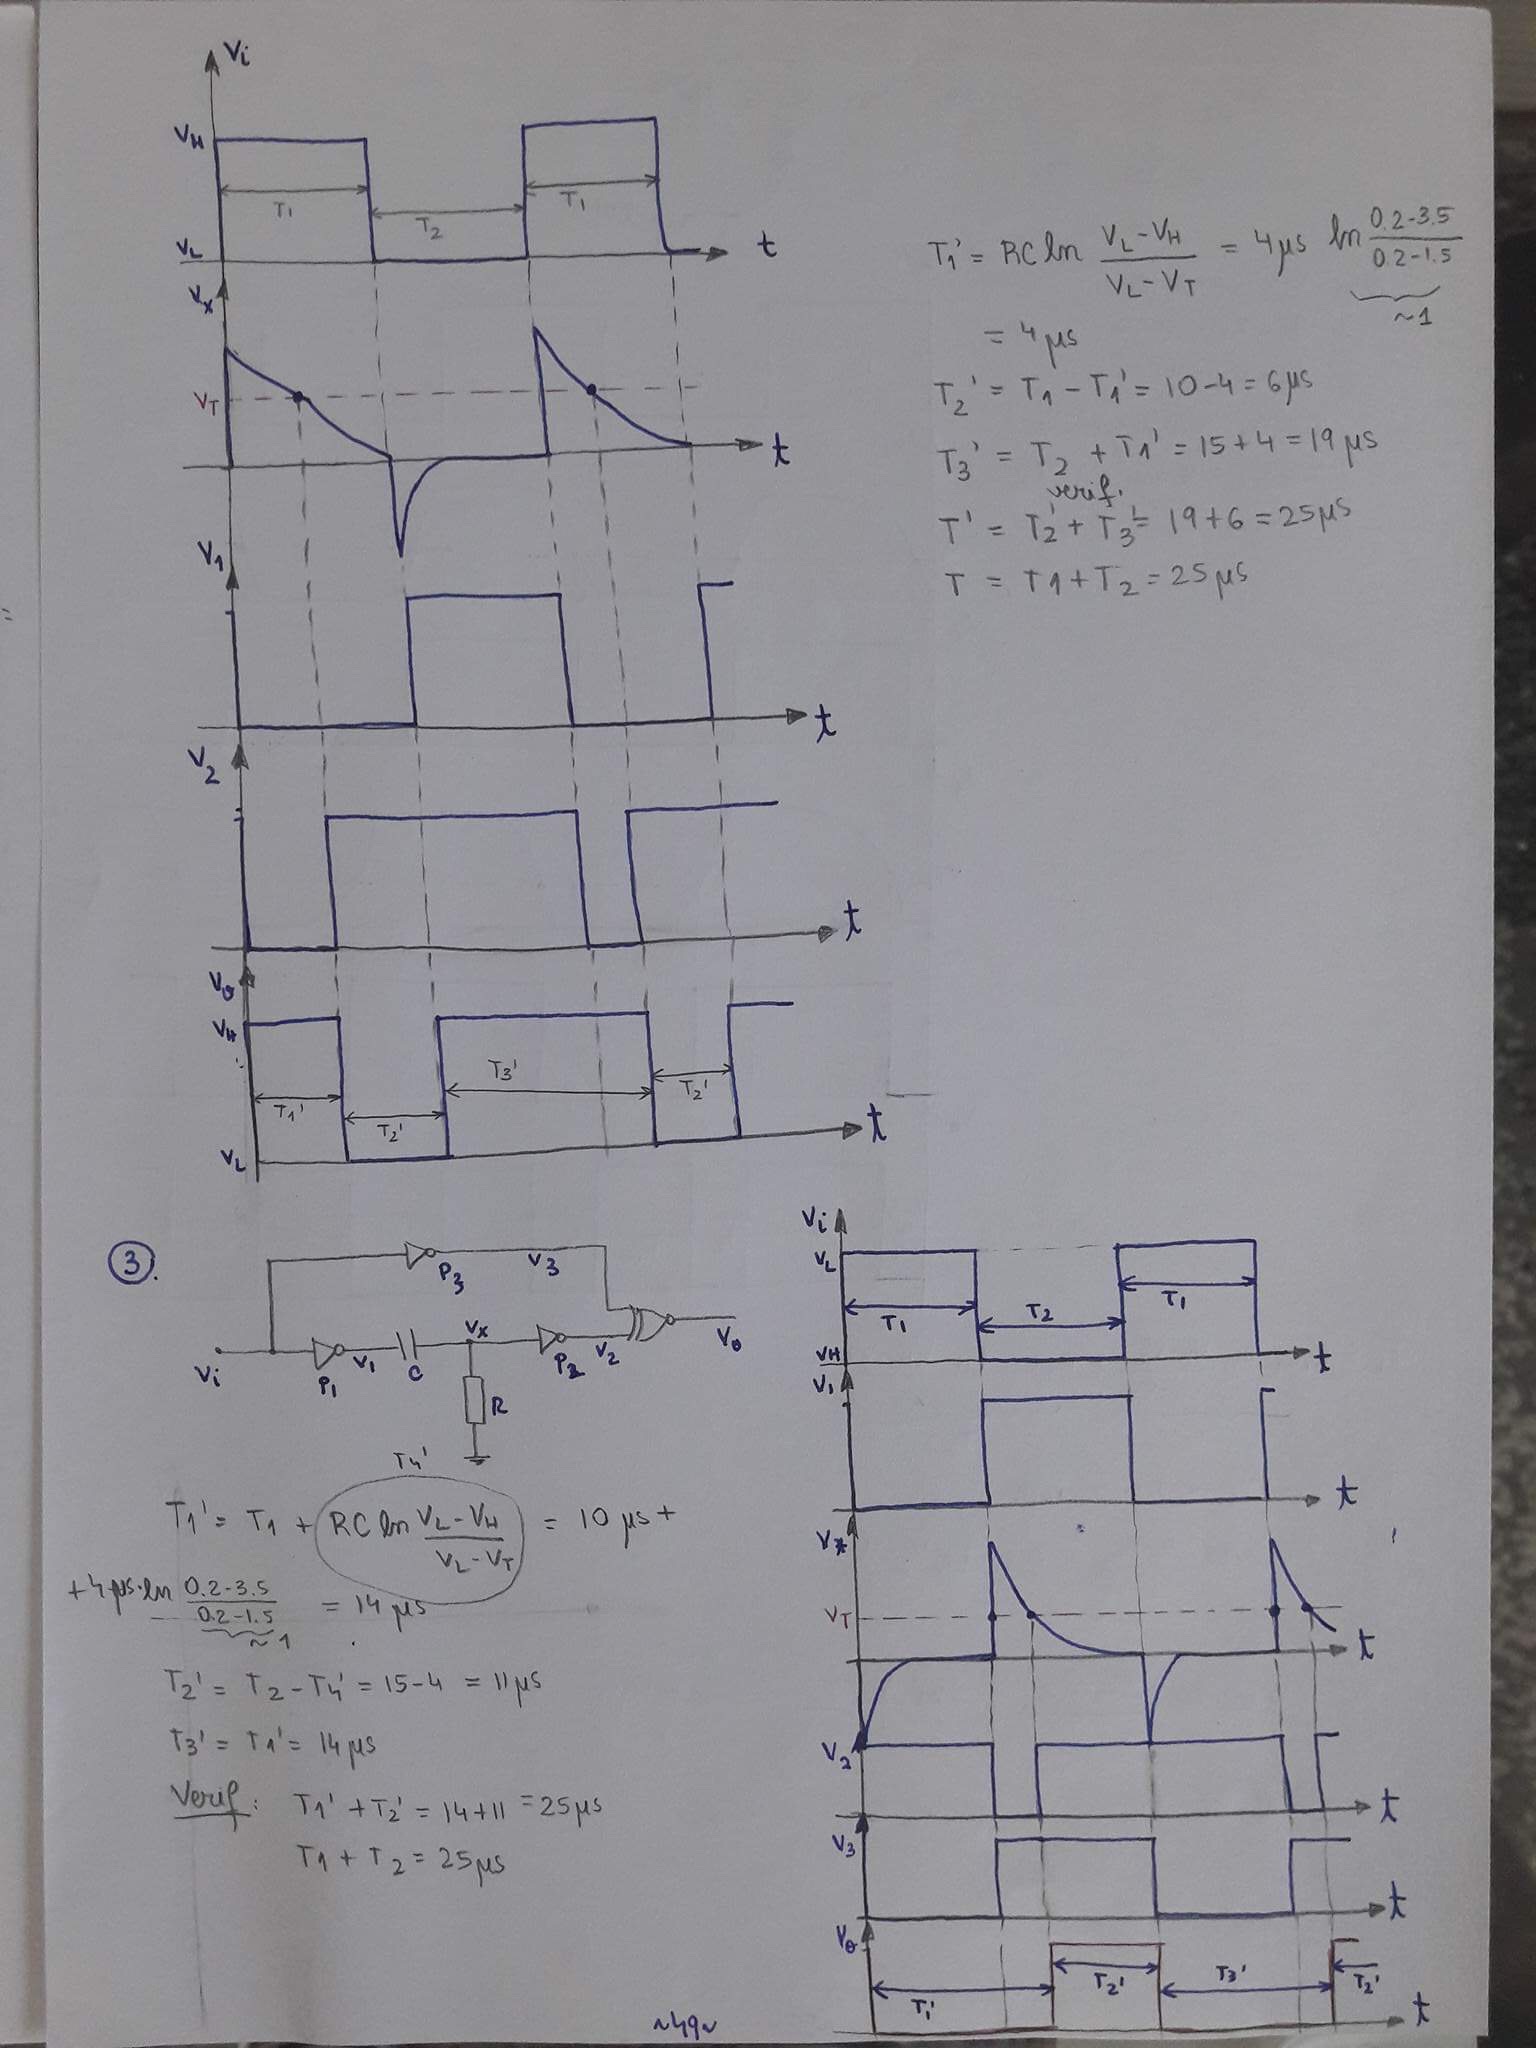 Vi
VH
T1
T2
T1
VL
t
Vx
VT
t
V1
t
V2
t
Vo
VH
T1'
T2'
T3'
T2'
VL
t
T1' = RC ln (VL-VH)/(VL-VT) = 4μs ln (0.2-3.5)/(0.2-1.5)
~1
= 4μs
T2' = T1 - T1' = 10-4 = 6μs
T3' = T2 + T1' = 15+4 = 19μs
verif.
T' = T2' + T3' = 19+6 = 25μs
T = T1+T2 = 25μs
3.
P3
V3
Vi
P1
V1
C
Vx
P2
V2
Vo
R
T4'
T1' = T1 + RC ln (VL-VH)/(VL-VT) = 10μs +
+4μs·ln (0.2-3.5)/(0.2-1.5) = 14μs
~1
T2' = T2 - T4' = 15-4 = 11μs
T3' = T1' = 14μs
Verif: T1' + T2' = 14+11 = 25μs
T1 + T2 = 25μs
Vi
VL
T1
T2
T1
VH
t
V1
t
Vx
VT
t
V2
t
V3
t
Vo
T1'
T2'
T3'
T2'
t
~49~